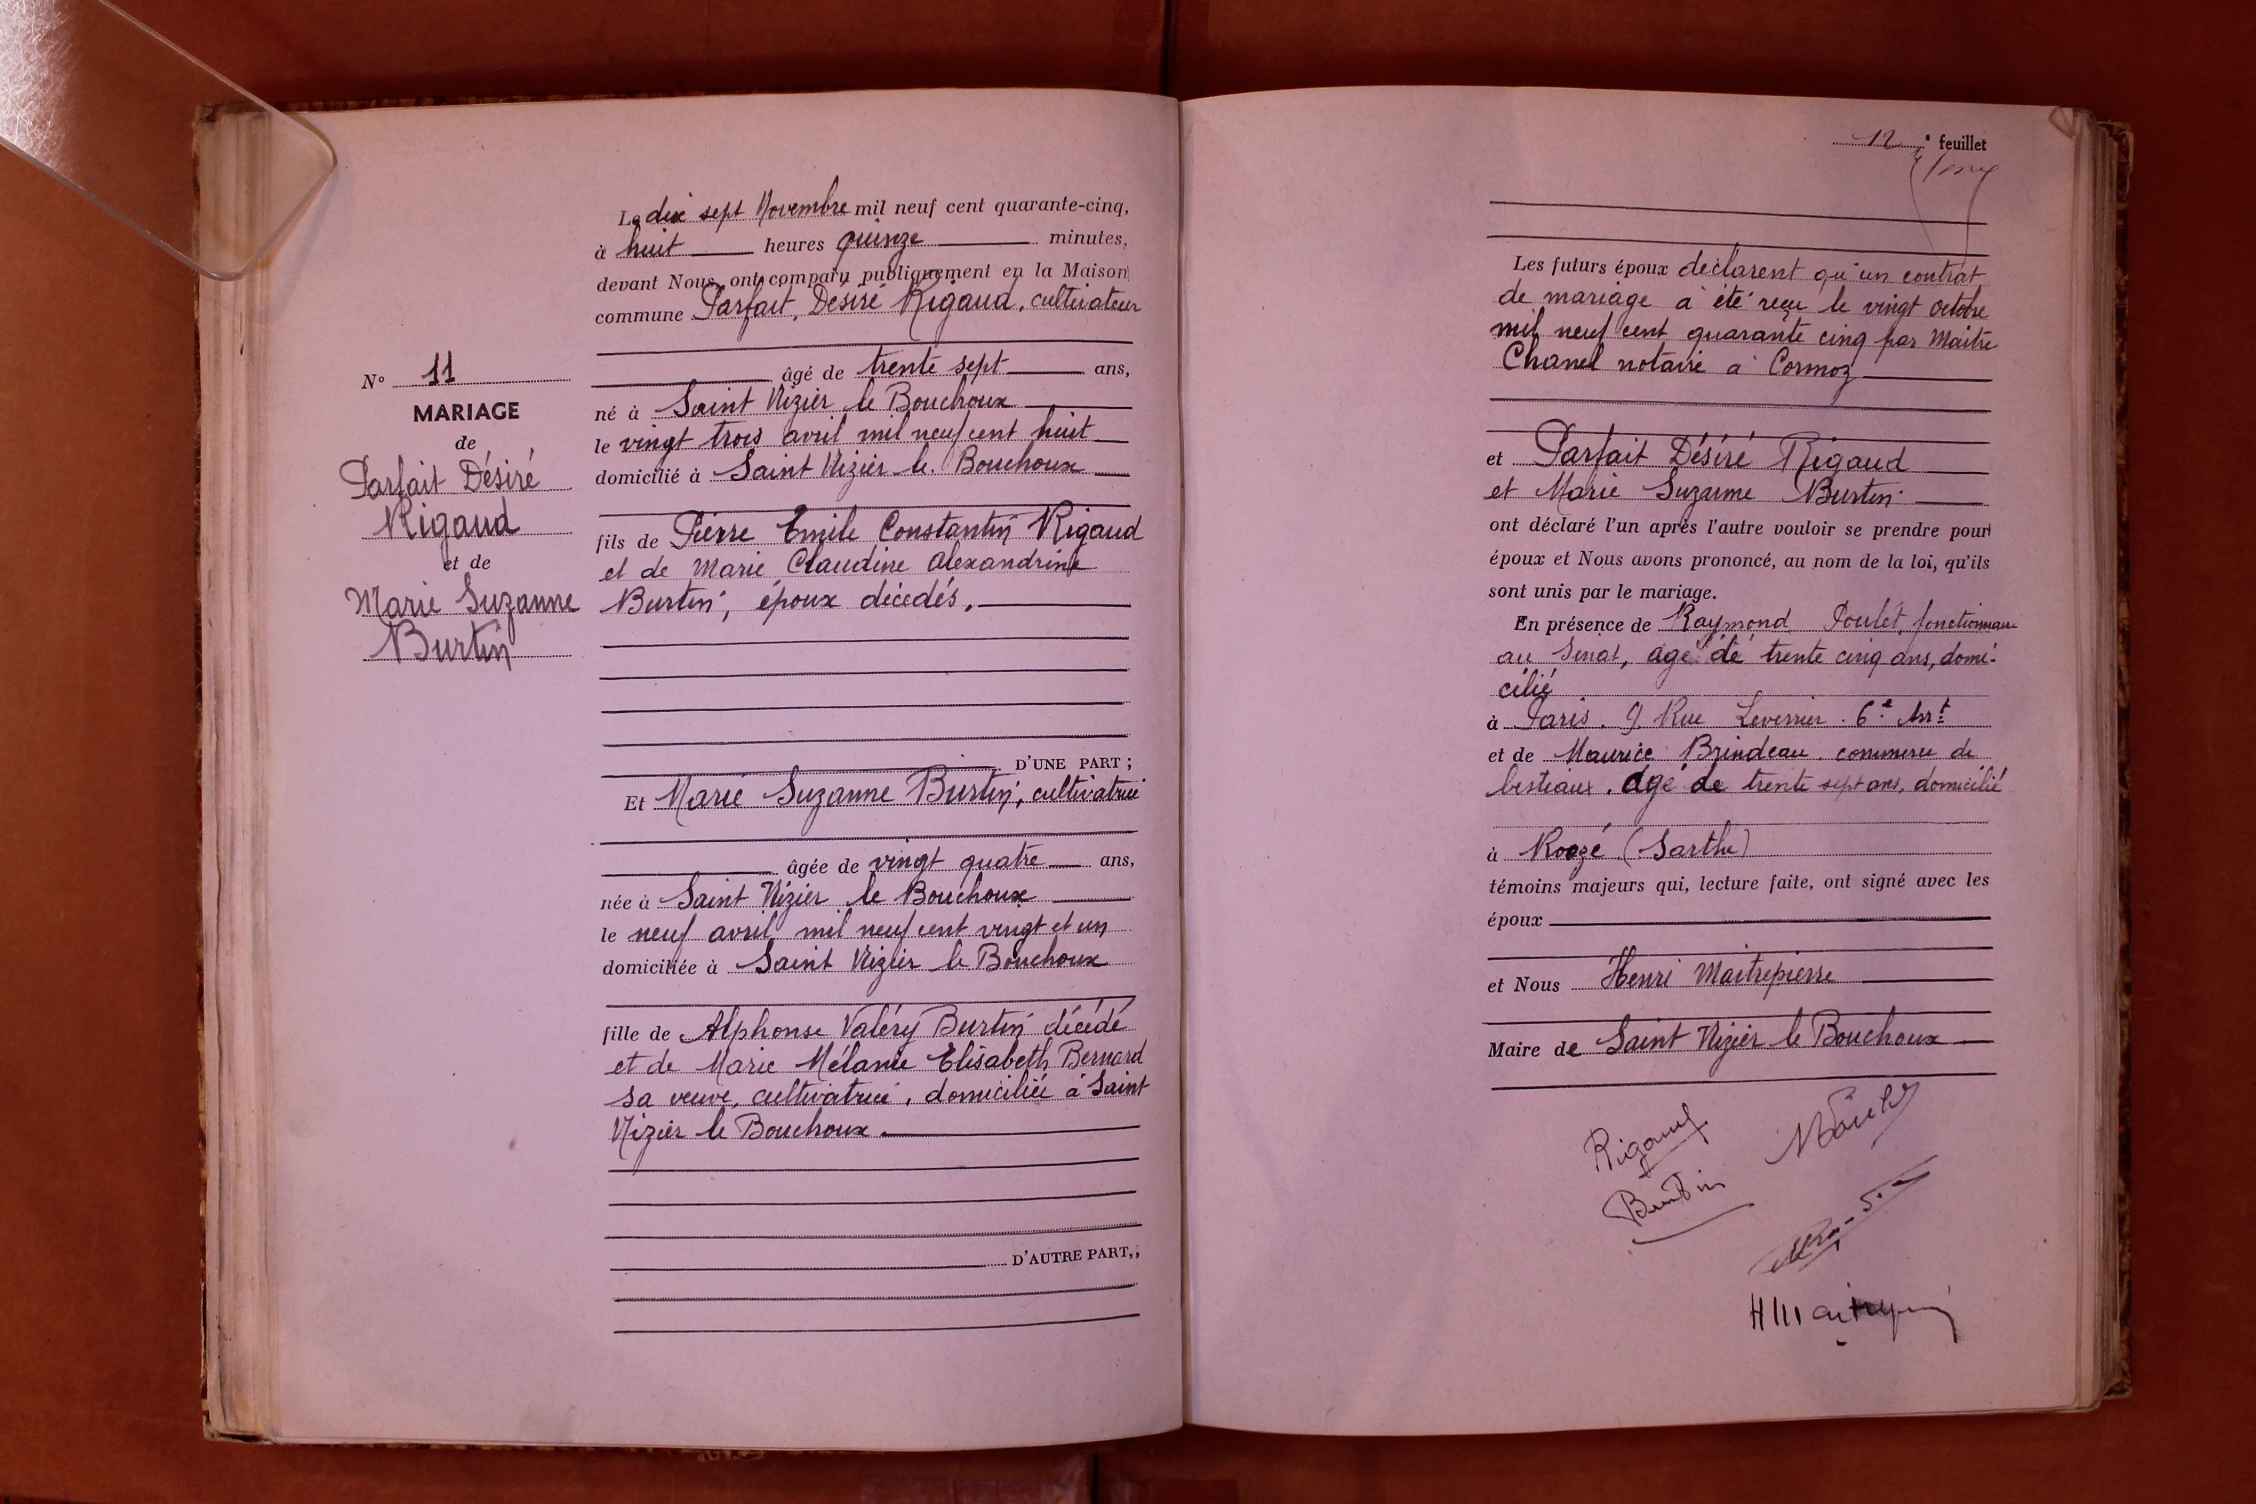 Le dix sept Novembre mil neuf cent quarante-cinq,
à huit heures quinze minutes,
devant Nous ont comparu publiquement en la Maison
commune Parfait, Désiré Rigaud, cultivateur
âgé de trente sept ans,
né à Saint Nizier le Bouchoux
le vingt trois avril mil neuf cent huit
domicilié à Saint Nizier le Bouchoux
fils de Pierre Emile Constantin Rigaud
et de Marie Claudine Alexandrine
Burtin, époux décédés.
D'UNE PART ;
Et Marie Suzanne Burtin, cultivatrice
âgée de vingt quatre ans,
née à Saint Nizier le Bouchoux
le neuf avril mil neuf cent vingt et un
domiciliée à Saint Nizier le Bouchoux
fille de Alphonse Valéry Burtin décédé
et de Marie Mélanie Elisabeth Bernard
sa veuve, cultivatrice, domiciliée à Saint
Nizier le Bouchoux.
D'AUTRE PART,;
N° 11
MARIAGE
de
Parfait Désiré
Rigaud
et de
Marie Suzanne
Burtin
12e feuillet
Les futurs époux déclarent qu'un contrat
de mariage a été reçu le vingt octobre
mil neuf cent quarante cinq par Maitre
Chanel notaire à Cormoz
et Parfait Désiré Rigaud
et Marie Suzanne Burtin
ont déclaré l'un après l'autre vouloir se prendre pour
époux et Nous avons prononcé, au nom de la loi, qu'ils
sont unis par le mariage.
En présence de Raymond Poulet, fonctionnaire
au Sénat, âgé de trente cinq ans, domi-
cilié
à Paris. 9 Rue Leverrier. 6e Arrt
et de Maurice Brindeau. commerce de
bestiaux. âgé de trente sept ans, domicilié
à Roezé (Sarthe)
témoins majeurs qui, lecture faite, ont signé avec les
époux
et Nous Henri Maitrepierre
Maire de Saint Nizier le Bouchoux
Rigaud
Burtin